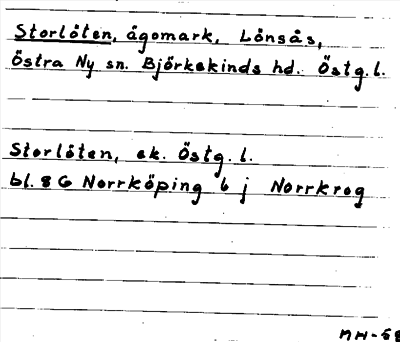 Storlöten, ägomark, Lönsås,
Östra Ny sn. Björkekinds hd. Östg.l.
Storlöten, ek. Östg.l.
bl. 8 G Norrköping 6 j Norrkrog
MH-68